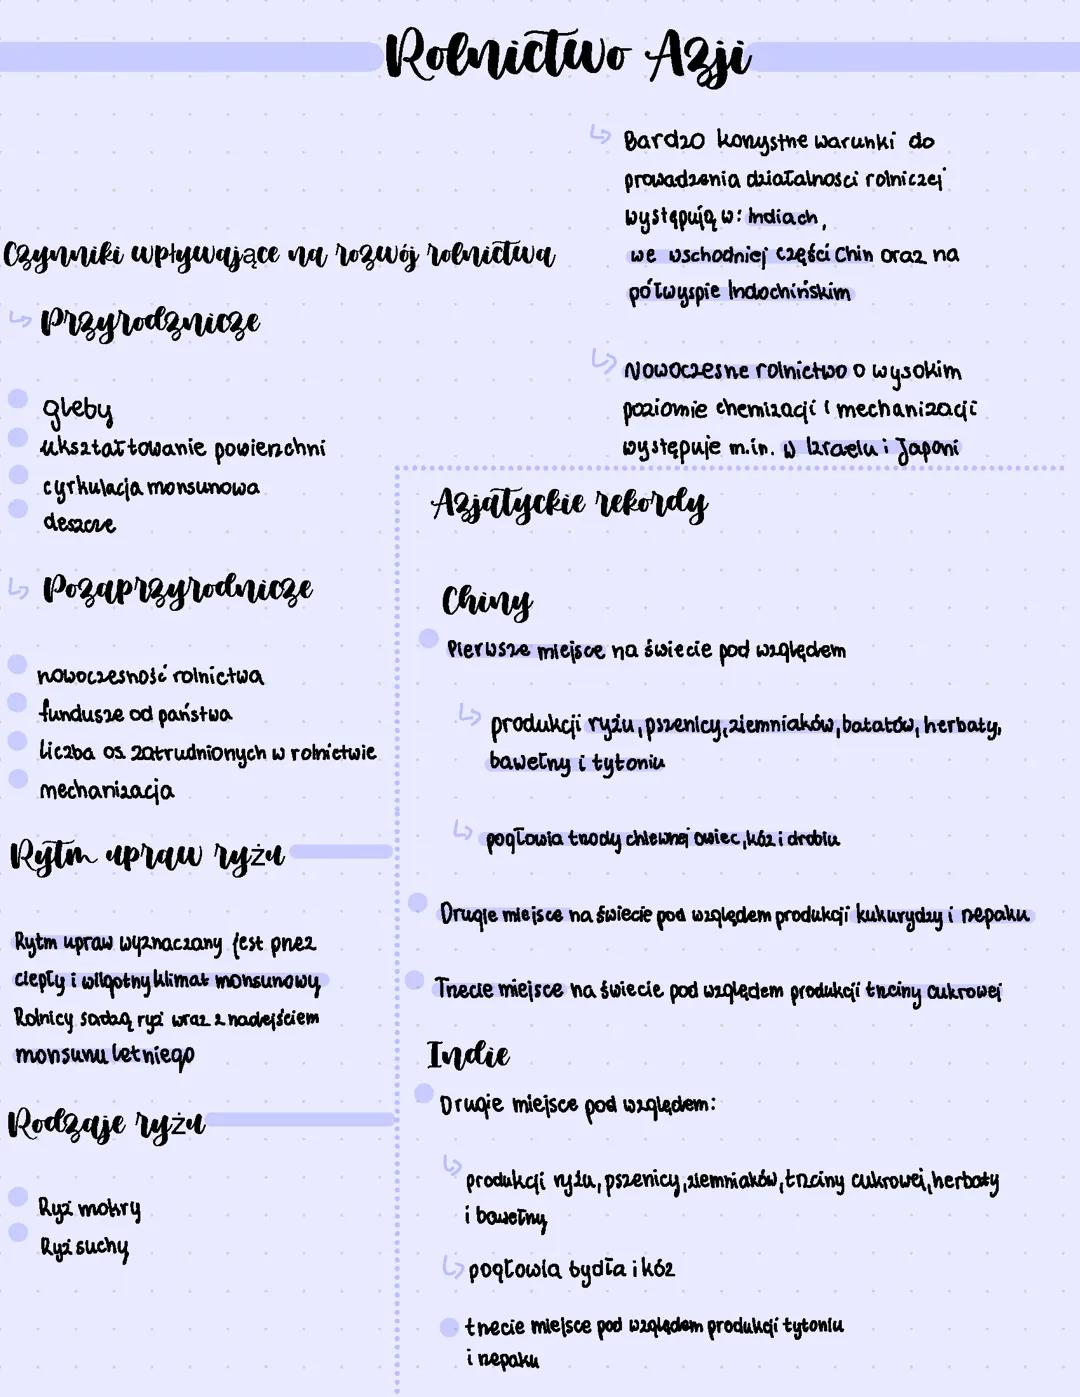 Rolnictwo Azji
Czynniki wpływające na rozwój rolnictwa
↳ Przyrodznicze
gleby
ukształtowanie powierzchni
cyrkulacja monsunowa
deszcze
↳ Pozaprzyrodnicze
nowoczesność rolnictwa
fundusze od państwa
liczba os. zatrudnionych w rolnictwie
mechanizacja
Rytm upraw ryżu
Rytm upraw wyznaczany jest przez
ciepły i wilgotny klimat monsunowy
Rolnicy sadzą ryż wraz z nadejściem
monsunu letniego
Rodzaje ryżu
Ryż mokry
Ryż suchy
↳ Bardzo korzystne warunki do
prowadzenia działalności rolniczej
występują w: Indiach,
we wschodniej części Chin oraz na
półwyspie Indochińskim
↳ Nowoczesne rolnictwo o wysokim
poziomie chemizacji i mechanizacji
występuje m.in. w Izraelu i Japoni
Azjatyckie rekordy
Chiny
Pierwsze miejsce na świecie pod względem
↳ produkcji ryżu, pszenicy, ziemniaków, batatów, herbaty,
bawełny i tytoniu
↳ pogłowia trzody chlewnej owiec, kóz i drobiu
Drugie miejsce na świecie pod względem produkcji kukurydzy i rzepaku
Trzecie miejsce na świecie pod względem produkcji trzciny cukrowej
Indie
Drugie miejsce pod względem:
↳ produkcji ryżu, pszenicy, ziemniaków, trzciny cukrowej, herbaty
i bawełny
↳ pogłowia bydła i kóz
trzecie miejsce pod względem produkcji tytoniu
i rzepaku